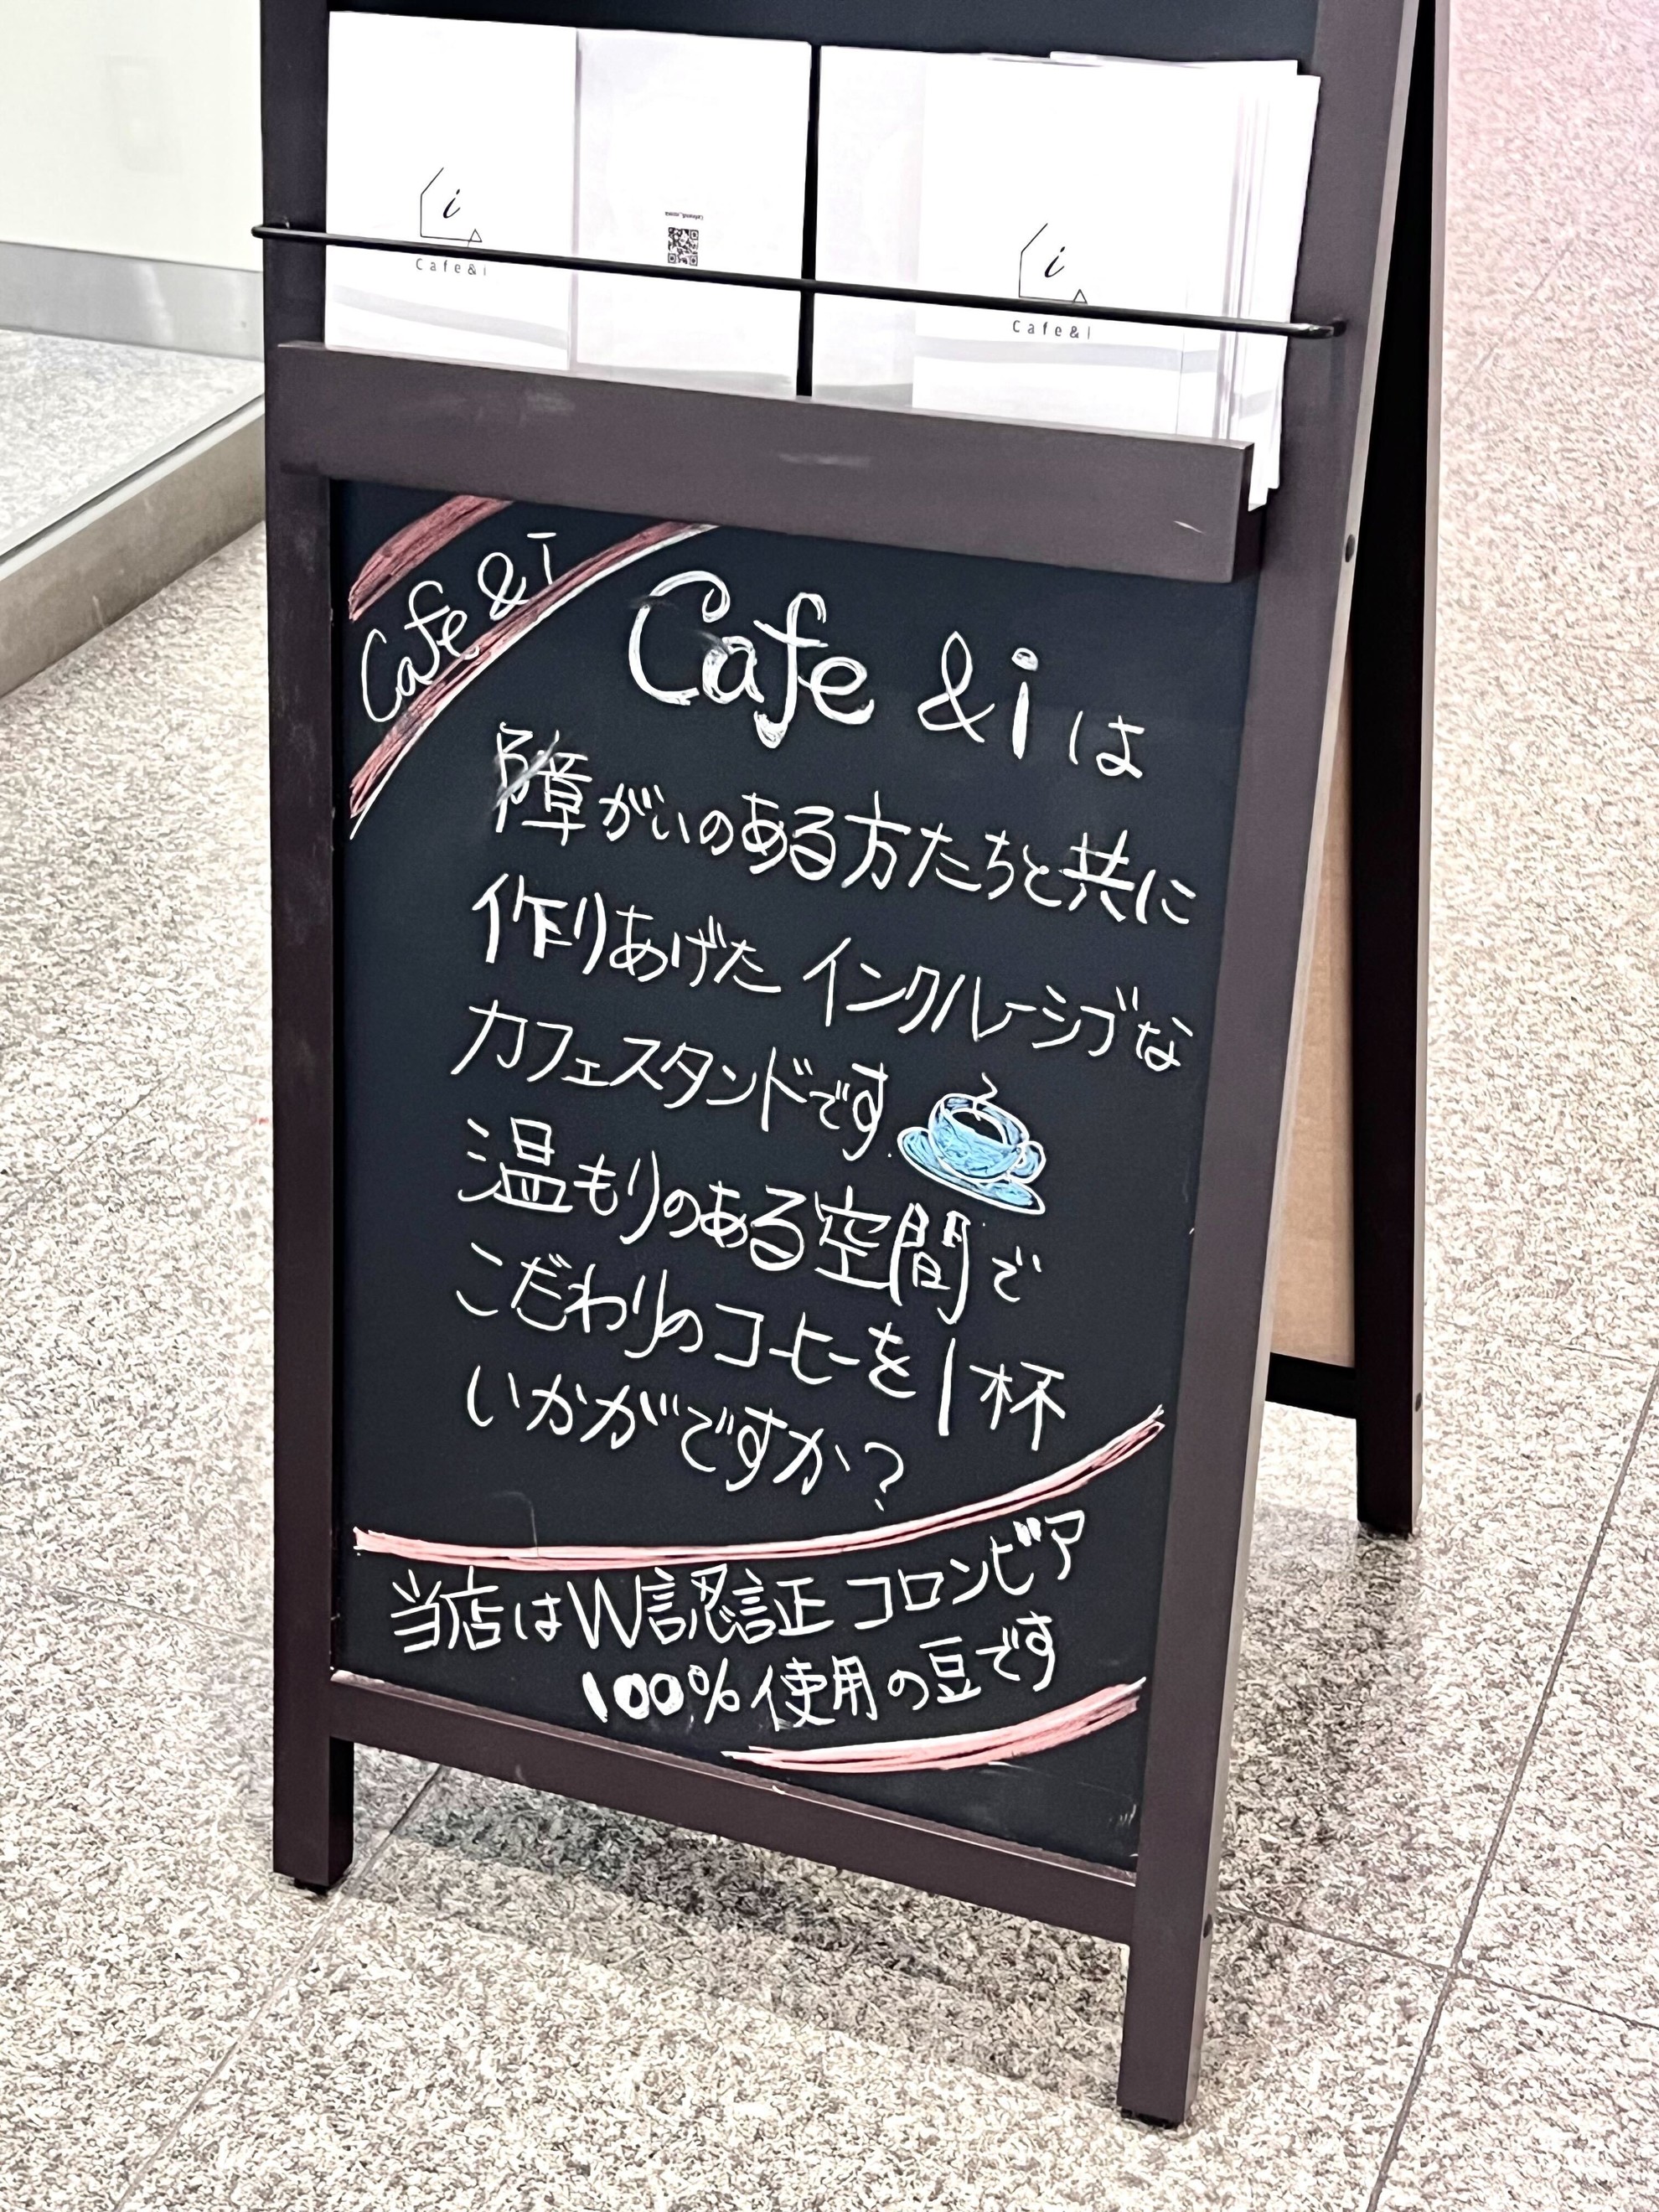 i
Cafe&i
i
Cafe&i
Cafe & I
Cafe & i は
障がいのある方たちと共に
作りあげた インクルーシブな
カフェスタンドです
温もりのある空間で
こだわりのコーヒーを1杯
いかがですか?
当店はW認証 コロンビア
100%使用の豆です